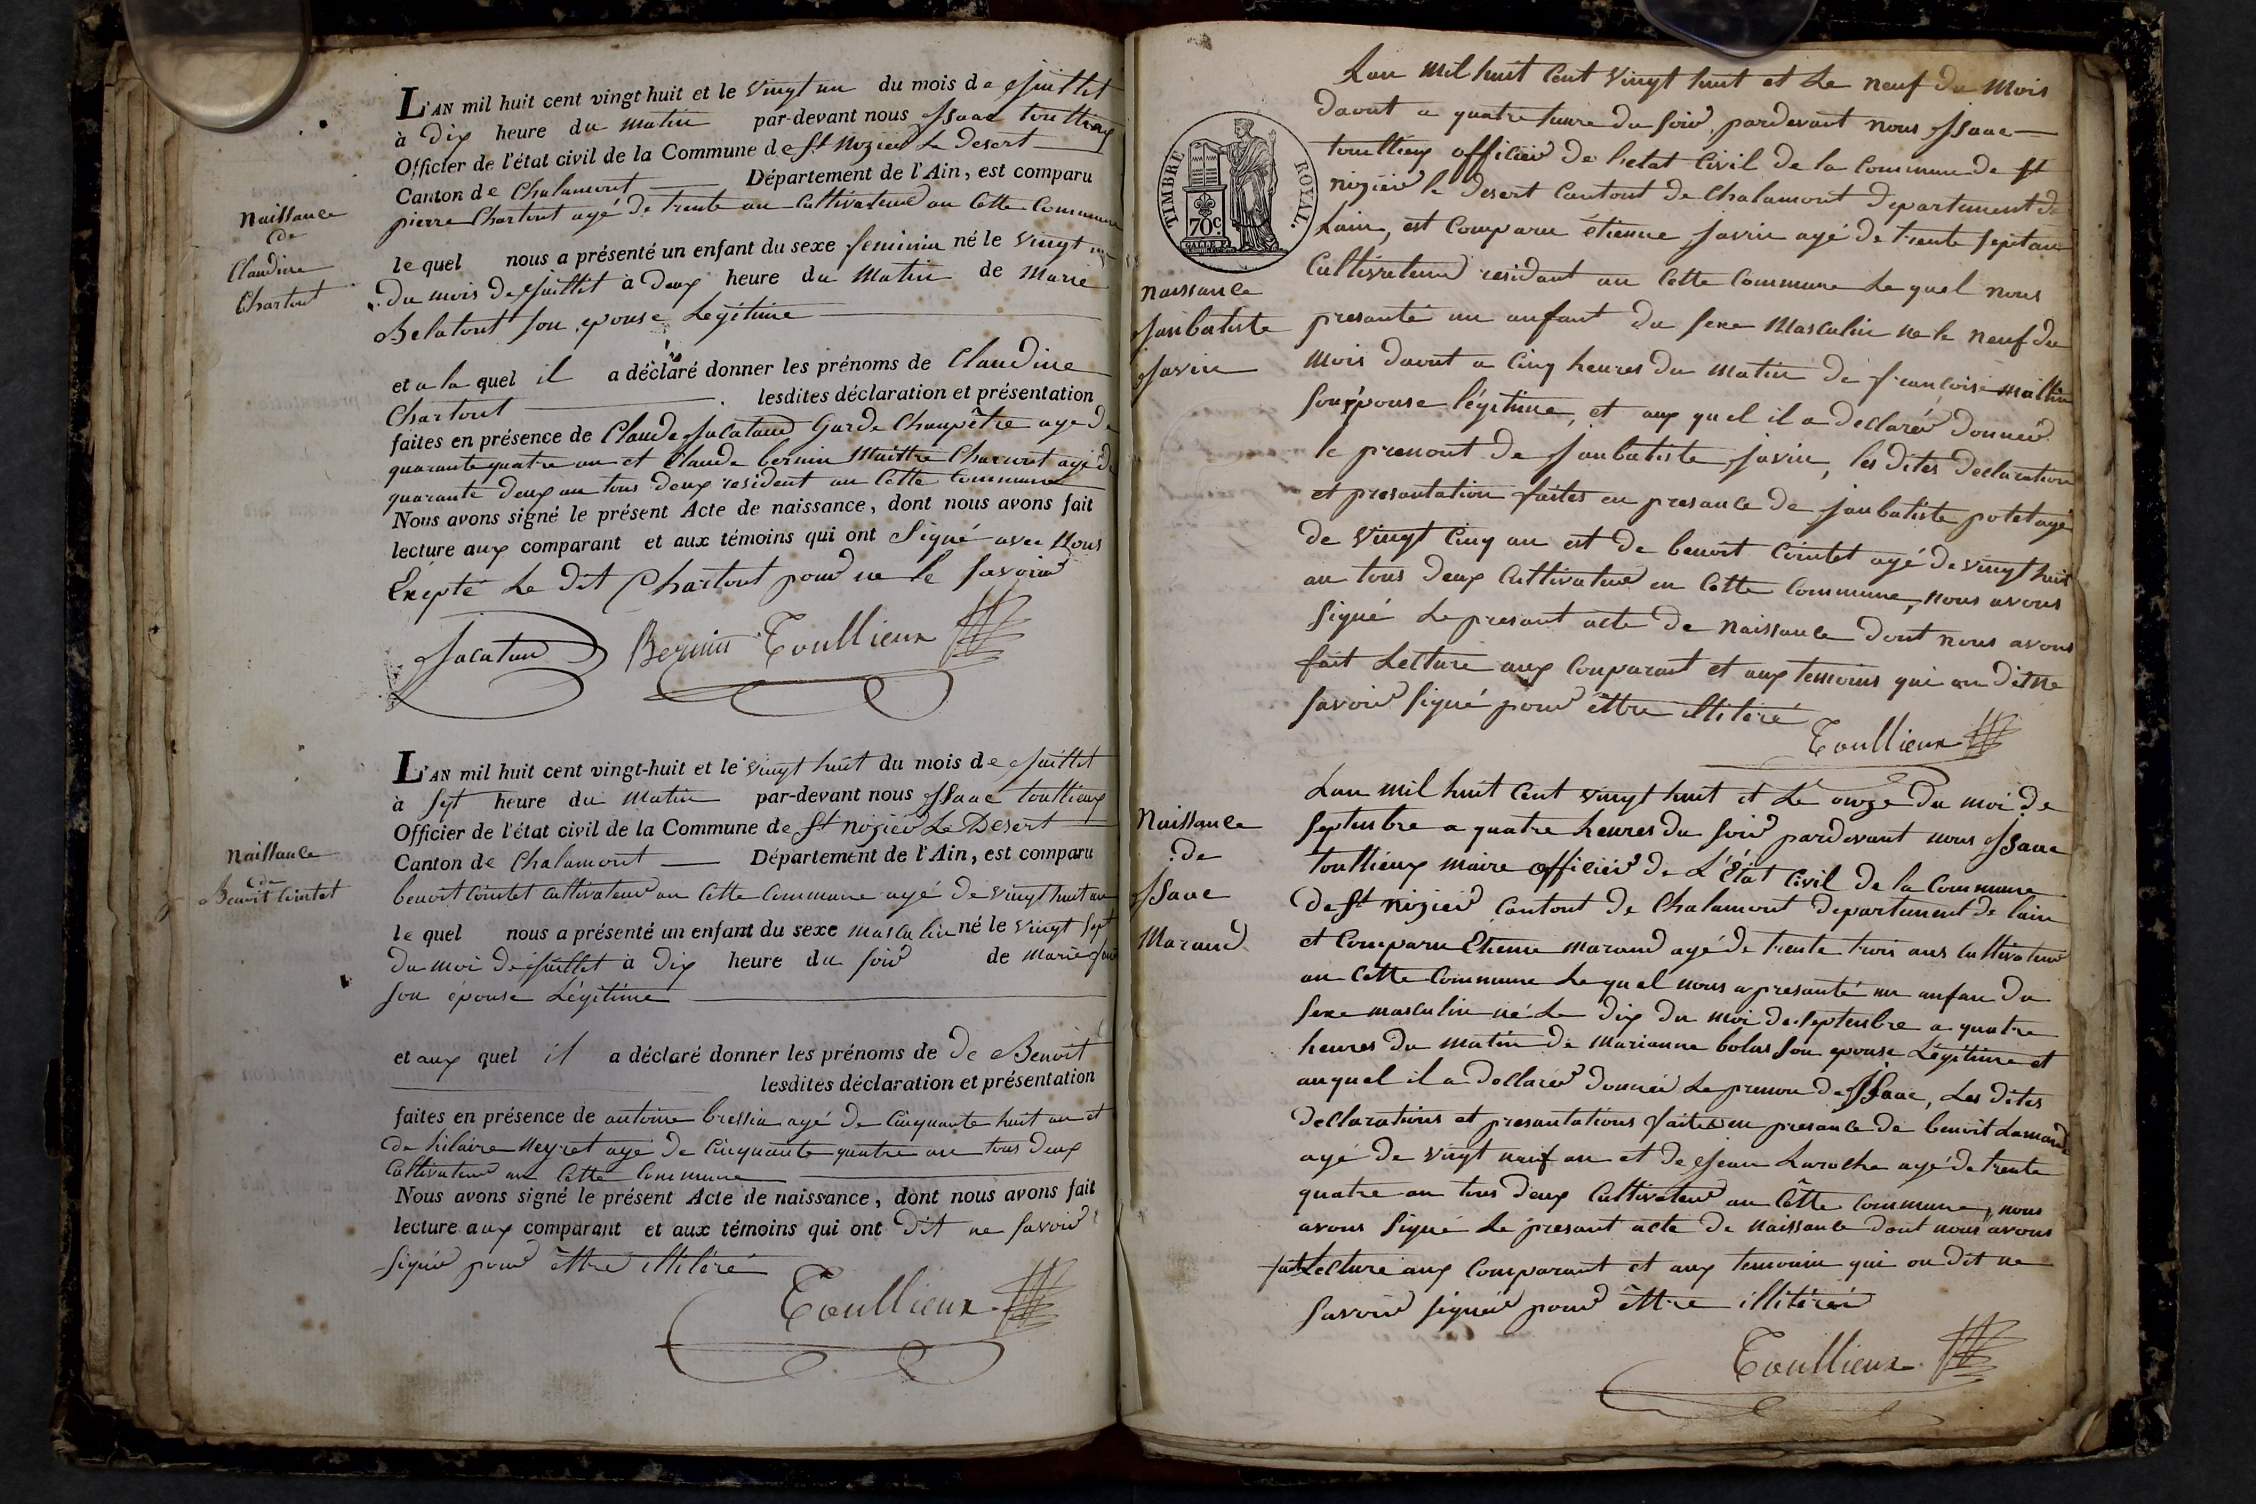 Naissance
de
Claudine
Chartout
L'AN mil huit cent vingt huit et le vingt un du mois de Juillet
à dix heure du matin par-devant nous Jsaac toullieux
Officier de l'état civil de la Commune de St nizier Le Desert
Canton de Chalamont Département de l'Ain, est comparu
pierre Chartout agé de trente an Cultivateur an Cette Commune
le quel nous a présenté un enfant du sexe feminin né le vingt un
du mois de Juillet à deux heure du Matin de Marie
Belatout son epouse Legitime
et a la quel il a déclaré donner les prénoms de Claudine
Chartout lesdites déclaration et présentation
faites en présence de Claude Jacataud Garde Champêtre age de
quarante quatre an et Claude bernin Maittre Charwet agé de
quarante deux an tous deux resident an Cette Commune
Nous avons signé le présent Acte de naissance, dont nous avons fait
lecture aux comparant et aux témoins qui ont Signé avec Nous
Exepté Le dit Chartout pour ne le Savoir
Jacataud Bernin Toullieux
Naissance
de
Benoit Cointet
L'AN mil huit cent vingt-huit et le vingt huit du mois de Juillet
à Sept heure du Matin par-devant nous Jsaac toullieux
Officier de l'état civil de la Commune de St nizier Le Desert
Canton de Chalamont Département de l'Ain, est comparu
benoit Cointet Cultivateur an Cette Commune agé de vingt huit an
le quel nous a présenté un enfant du sexe masculin né le vingt Sept
du moi de Juillet à dix heure du Soir de Marie
Son épouse Légitime
et aux quel il a déclaré donner les prénoms de de Benoit
lesdites déclaration et présentation
faites en présence de antoine bressia agé de Cinquante huit an et
de hilaire Neyret agé de Cinquante quatre an tous deux
Cultivateur an Cette Commune
Nous avons signé le présent Acte de naissance, dont nous avons fait
lecture aux comparant et aux témoins qui ont dit ne Savoir
Signér pour êttre illiléré
Toullieux
TIMBRE ROYAL.
70c
Naissance
Janbatiste
Javrin
Lan mil huit Cent vingt huit et Le neuf du Mois
daout a quatre heure du Soir pardevant nous Jsaac
toullieux officier de letat Civil de la Commune de St
nizier le desert Cantont de Chalamont departement de
Lain, est Comparu étienne Javrin agé de trente Sept an
Cultivateur residant an Cette Commune Le quel nous
presanté un anfant du Sexe Masculin ne le neuf du
Mois daout a Cinq heures du Matin de francoise mathin
Son epouse légitime, et aux quel il a declarér donnér
le prenont de Janbatiste Javin, les dites declaration
et presantation faites en presance de Janbatiste potet agé
de vingt Cinq an et de benoit Cointet agé de vingt huit
an tous deux Cultivateur en Cette Commune, Nous avons
Signé Le presant acte de Naissance dont nous avons
fait Lecture aux Comparant et aux temoins qui on dit ne
Savoir Signé pour êttre illiteré
Toullieux
Naissance
de
Jsaac
Maraud
Lan mil huit Cent vingt huit et Le onze du moi de
Septembre a quatre heures du Soir pardevant nous Jsaac
toullieux maire officier de L'État Civil de la Commune
de St Nizier Cantont de Chalamont departement de lain
et Comparu Etienne maraud agé de trente trois ans Cultivateur
an Cette Commune Le quel nous a presanté un anfan du
Sexe masculin né Le dix du moi de Septembre a quatre
heures du matin de marianne bolus Son epouse Légitime et
au quel il a declarér donnér Le prenon de Jsaac, Les dites
declarations et presantations faites en presance de benoit Lamard
agé de vingt neuf an et de Jean Laroche agé de trente
quatre an tous deux Cultivateur an Cêtte Commune, nous
avons Signé Le presant acte de Naissance dont nous avons
fait Lecture aux Comparant et aux temoin qui on dit ne
Savoir Signér pour êttre illitérér
Toullieux